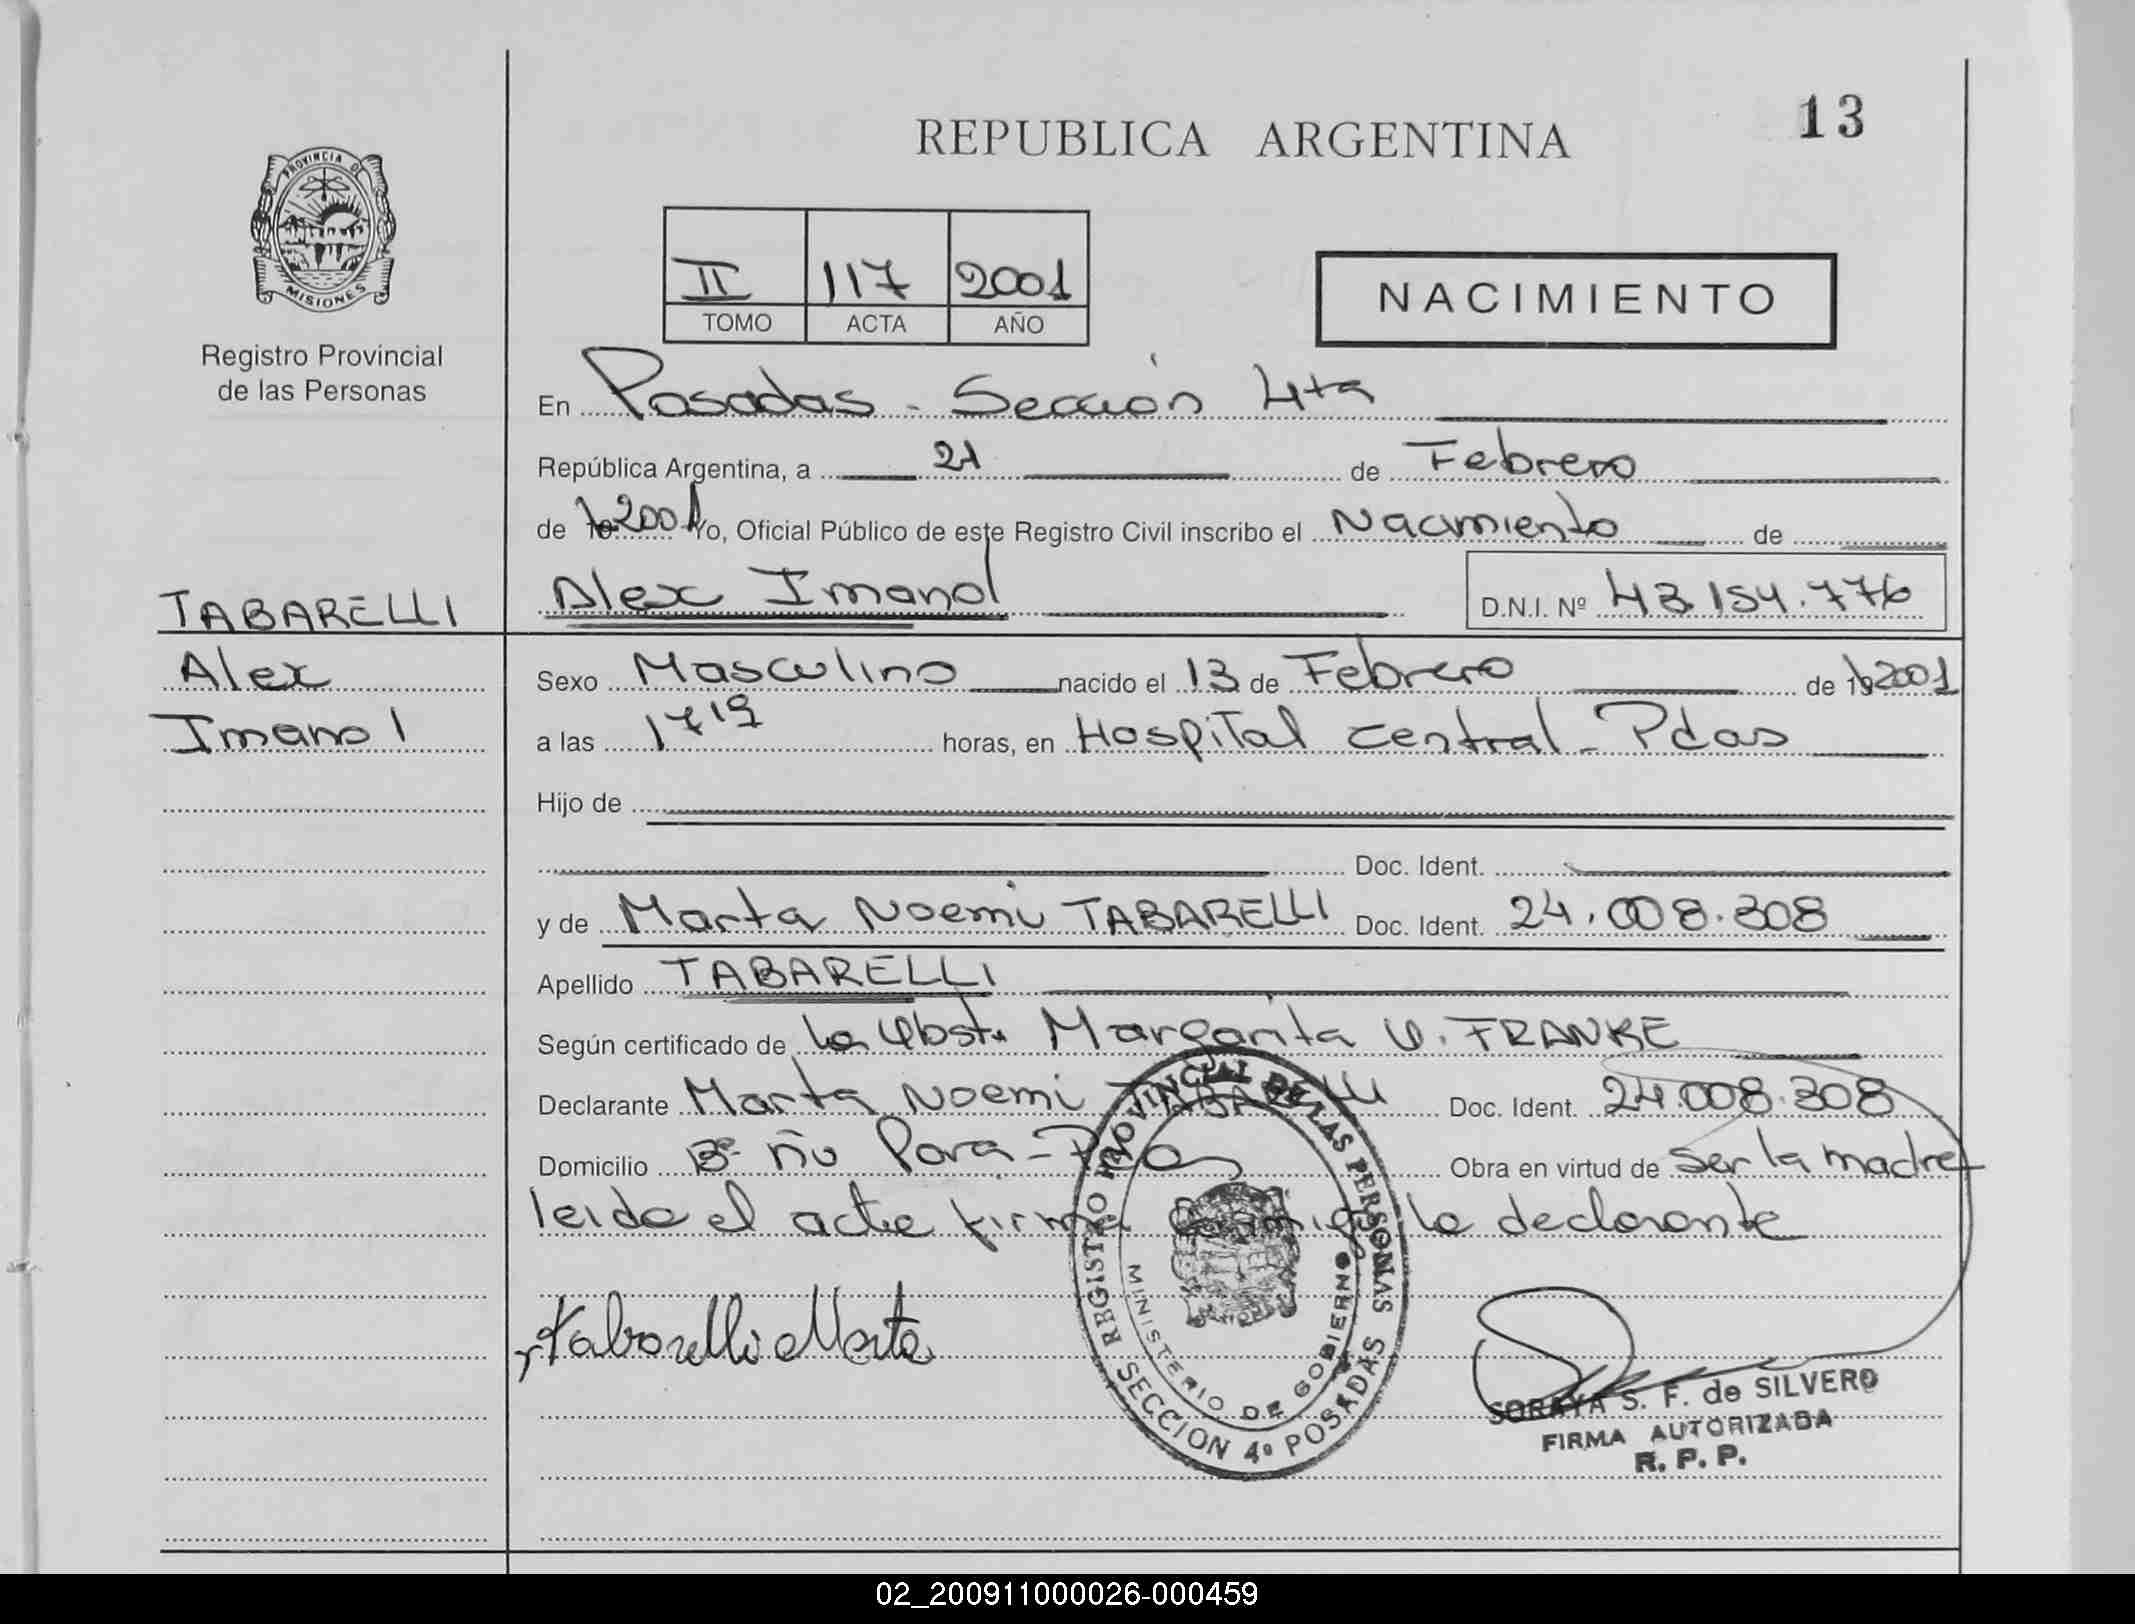 REPUBLICA ARGENTINA
13
PROVINCIA DE
MISIONES
Registro Provincial
de las Personas
II 117 2001
TOMO ACTA AÑO
NACIMIENTO
En Posadas - Sección 4ta
República Argentina, a 21 de Febrero
de 2001 Yo, Oficial Público de este Registro Civil inscribo el Nacimiento de
Alex Imanol D.N.I. Nº 43.154.776
TABARELLI
Alex
Imanol
Sexo Masculino nacido el 13 de Febrero de 2001
a las 17 19 horas, en Hospital Central - Pdas
Hijo de
Doc. Ident.
y de Marta Noemi TABARELLI Doc. Ident. 24.008.308
Apellido TABARELLI
Según certificado de la Obst. Margarita V. FRANKE
Declarante Marta Noemi TABARELLI Doc. Ident. 24.008.308
Domicilio Bº Ñu Pora - Pdas Obra en virtud de ser la madre
leida el acta firma conmigo la declarante
Tabarelli Marta
REGISTRO PROVINCIAL DE LAS PERSONAS
MINISTERIO DE GOBIERNO
SECCION 4º POSADAS
SORAYA S. F. de SILVERO
FIRMA AUTORIZADA
R. P. P.
02_200911000026-000459